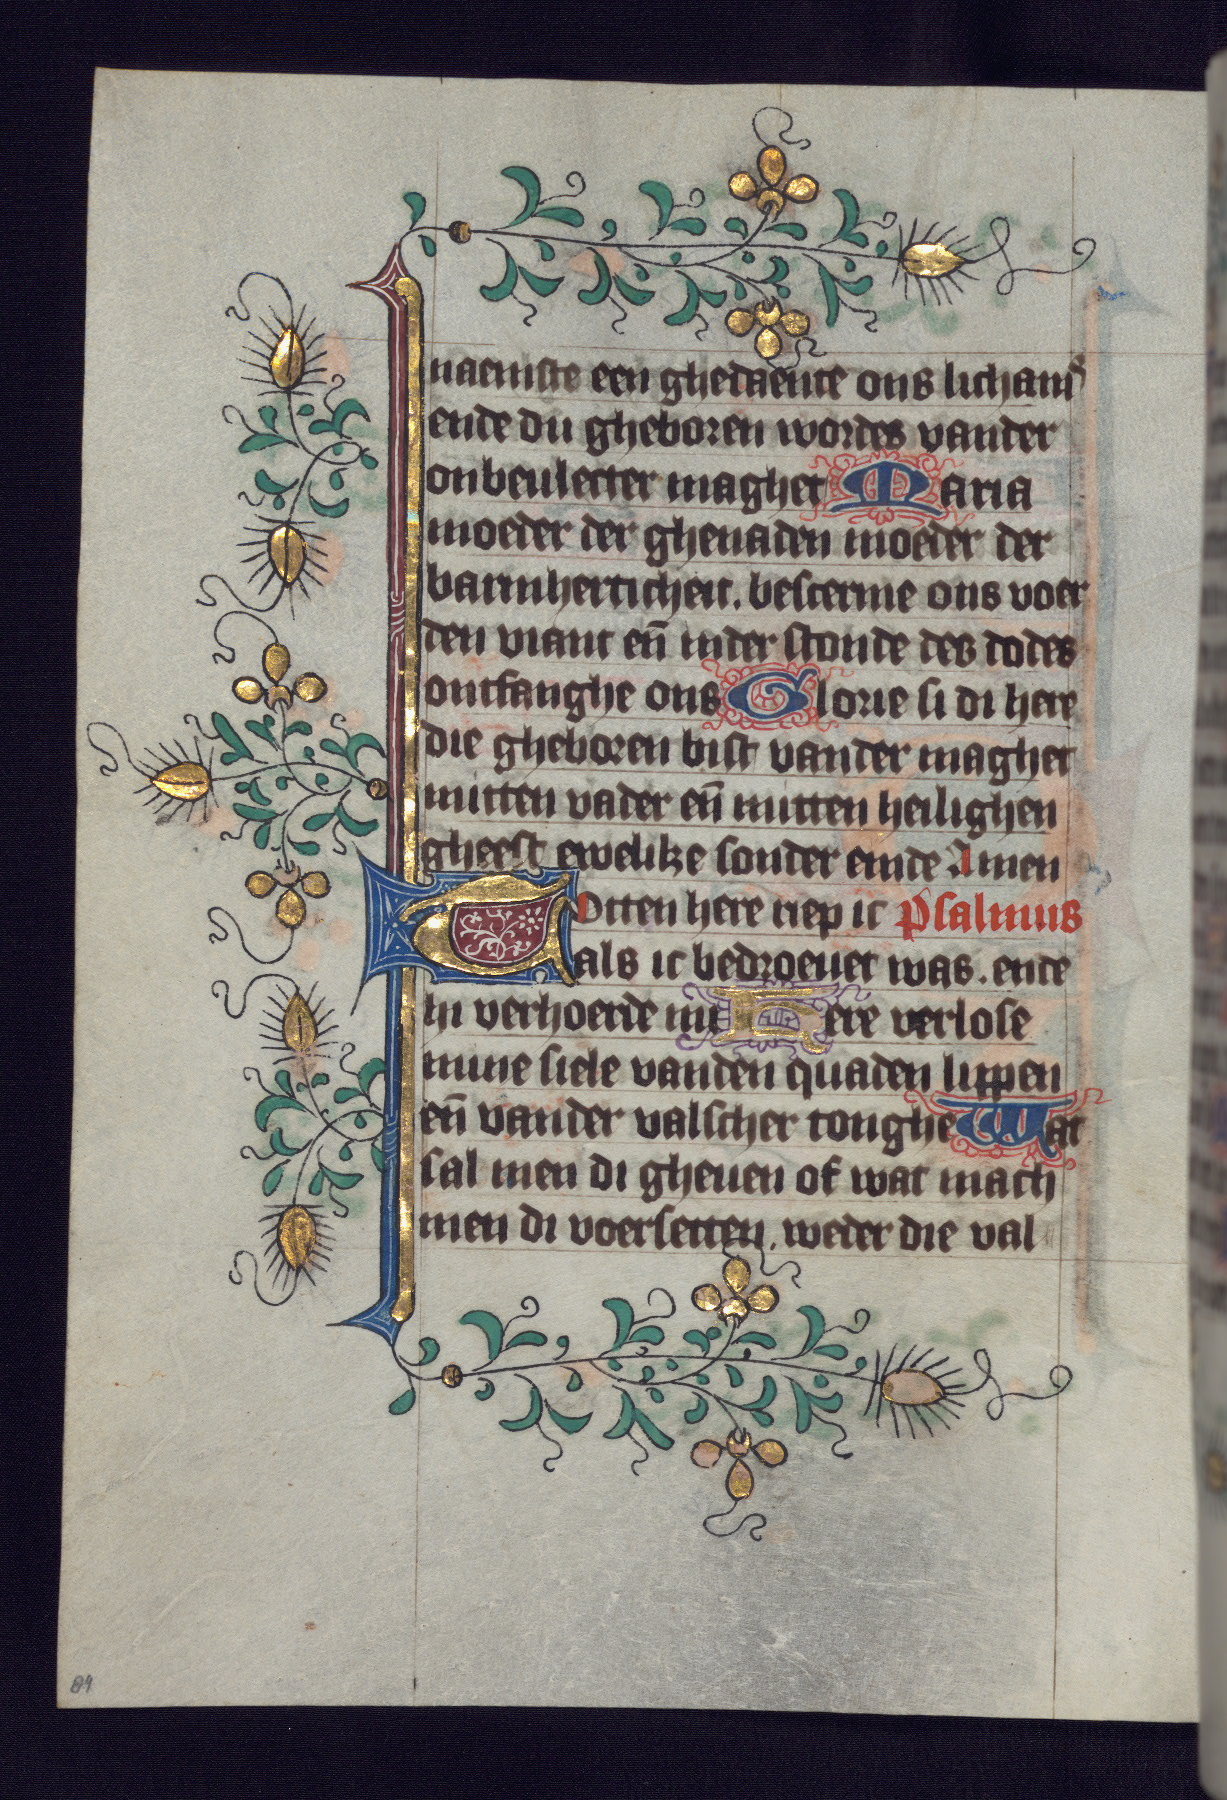 naemste een ghedaente ons lichams
ende du gheboren wordes vander
onbeulecter maghet Maria
moeder der ghenaden moeder der
barmherticheit. bescerme ons voer
den viant en̄ inder stonde des dodes
ontfanghe ons Glorie si di here
die gheboren bist vander maghet
mitten vader en̄ mitten heilighen
gheest ewelike sonder einde Amen
Totten here riep ic Psalmus
als ic bedroeuet was. ende
hi verhoerde mi Here verlose
mine siele vanden quaden lippen
en̄ vander valscher tonghe Wat
sal men di gheuen of wat mach
men di voersetten. weder die val
84